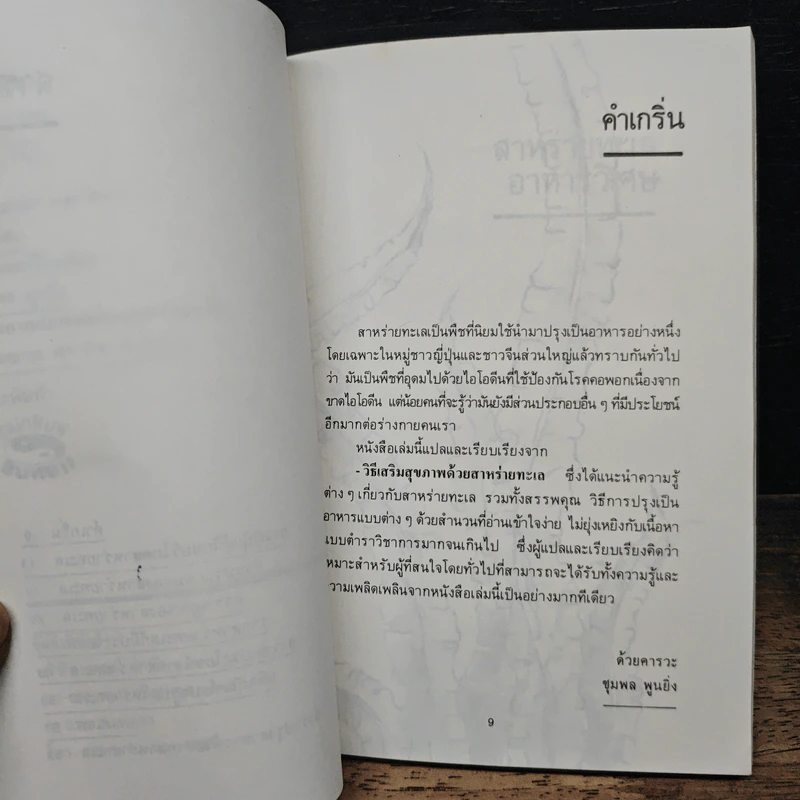 คำเกริ่น
สาหร่ายทะเลเป็นพืชที่นิยมใช้นำมาปรุงเป็นอาหารอย่างหนึ่ง
โดยเฉพาะในหมู่ชาวญี่ปุ่นและชาวจีนส่วนใหญ่แล้วทราบกันทั่วไป
ว่า มันเป็นพืชที่อุดมไปด้วยไอโอดีนที่ใช้ป้องกันโรคคอพอกเนื่องจาก
ขาดไอโอดีน แต่น้อยคนที่จะรู้ว่ามันยังมีส่วนประกอบอื่น ๆ ที่มีประโยชน์
อีกมากต่อร่างกายคนเรา
หนังสือเล่มนี้แปลและเรียบเรียงจาก
- วิธีเสริมสุขภาพด้วยสาหร่ายทะเล ซึ่งได้แนะนำความรู้
ต่าง ๆ เกี่ยวกับสาหร่ายทะเล รวมทั้งสรรพคุณ วิธีการปรุงเป็น
อาหารแบบต่าง ๆ ด้วยสำนวนที่อ่านเข้าใจง่าย ไม่ยุ่งเหยิงกับเนื้อหา
แบบตำราวิชาการมากจนเกินไป ซึ่งผู้แปลและเรียบเรียงคิดว่า
เหมาะสำหรับผู้ที่สนใจโดยทั่วไปที่สามารถจะได้รับทั้งความรู้และ
ความเพลิดเพลินจากหนังสือเล่มนี้เป็นอย่างมากทีเดียว
ด้วยคารวะ
ชุมพล พูนยิ่ง
9